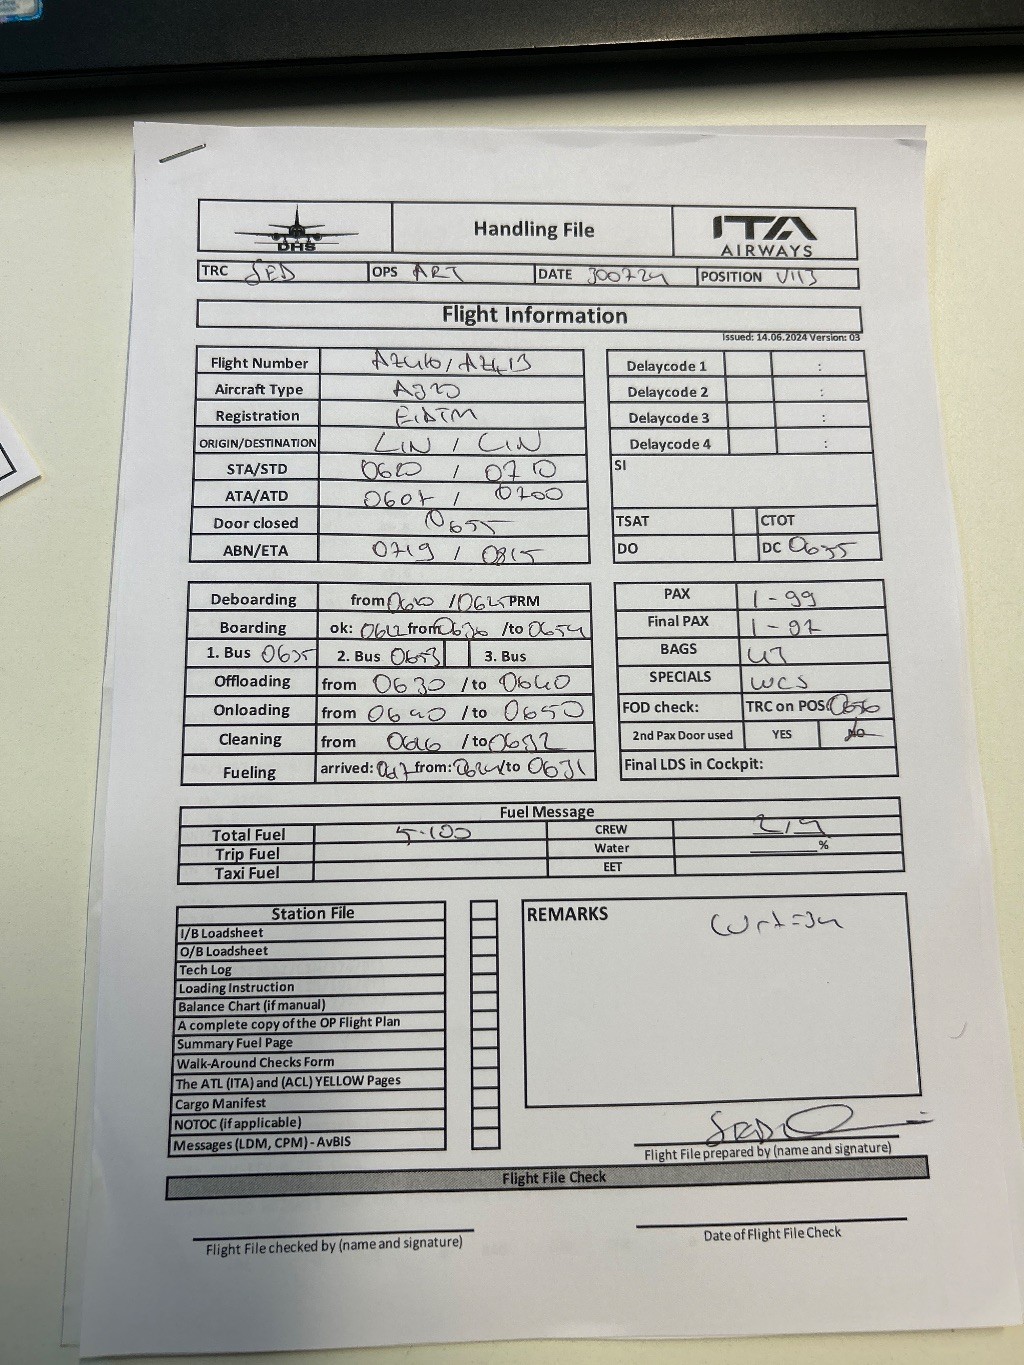 DHS Handling File ITA AIRWAYS
TRC SED OPS ART DATE 300724 POSITION V113
Flight Information
Issued: 14.06.2024 Version: 03
Flight Number
Aircraft Type A320
Registration EIDTM
ORIGIN/DESTINATION LIN /
STA/STD 0620 / 0710
ATA/ATD 0607 / 0700
Door closed 0655
ABN/ETA 0719 / 0815
Delaycode 1 :
Delaycode 2 :
Delaycode 3 :
Delaycode 4 :
SI
TSAT CTOT
DO DC
Deboarding from /0625 PRM
Boarding ok: 0622 from 0636 /to 0654
1. Bus 0635 2. Bus 0653 3. Bus
Offloading from 0630 /to 0640
Onloading from 0640 /to 0650
Cleaning from /to
Fueling arrived: from: /to 0631
PAX 1-99
Final PAX 1-97
BAGS 47
SPECIALS WCS
FOD check: TRC on POS:
2nd Pax Door used YES
Final LDS in Cockpit:
Fuel Message
Total Fuel 5.100 CREW 2/4
Trip Fuel Water %
Taxi Fuel EET
Station File
I/B Loadsheet
O/B Loadsheet
Tech Log
Loading Instruction
Balance Chart (if manual)
A complete copy of the OP Flight Plan
Summary Fuel Page
Walk-Around Checks Form
The ATL (ITA) and (ACL) YELLOW Pages
Cargo Manifest
NOTOC (if applicable)
Messages (LDM, CPM) - AvBIS
REMARKS
SED
Flight File prepared by (name and signature)
Flight File Check
Flight File checked by (name and signature)
Date of Flight File Check